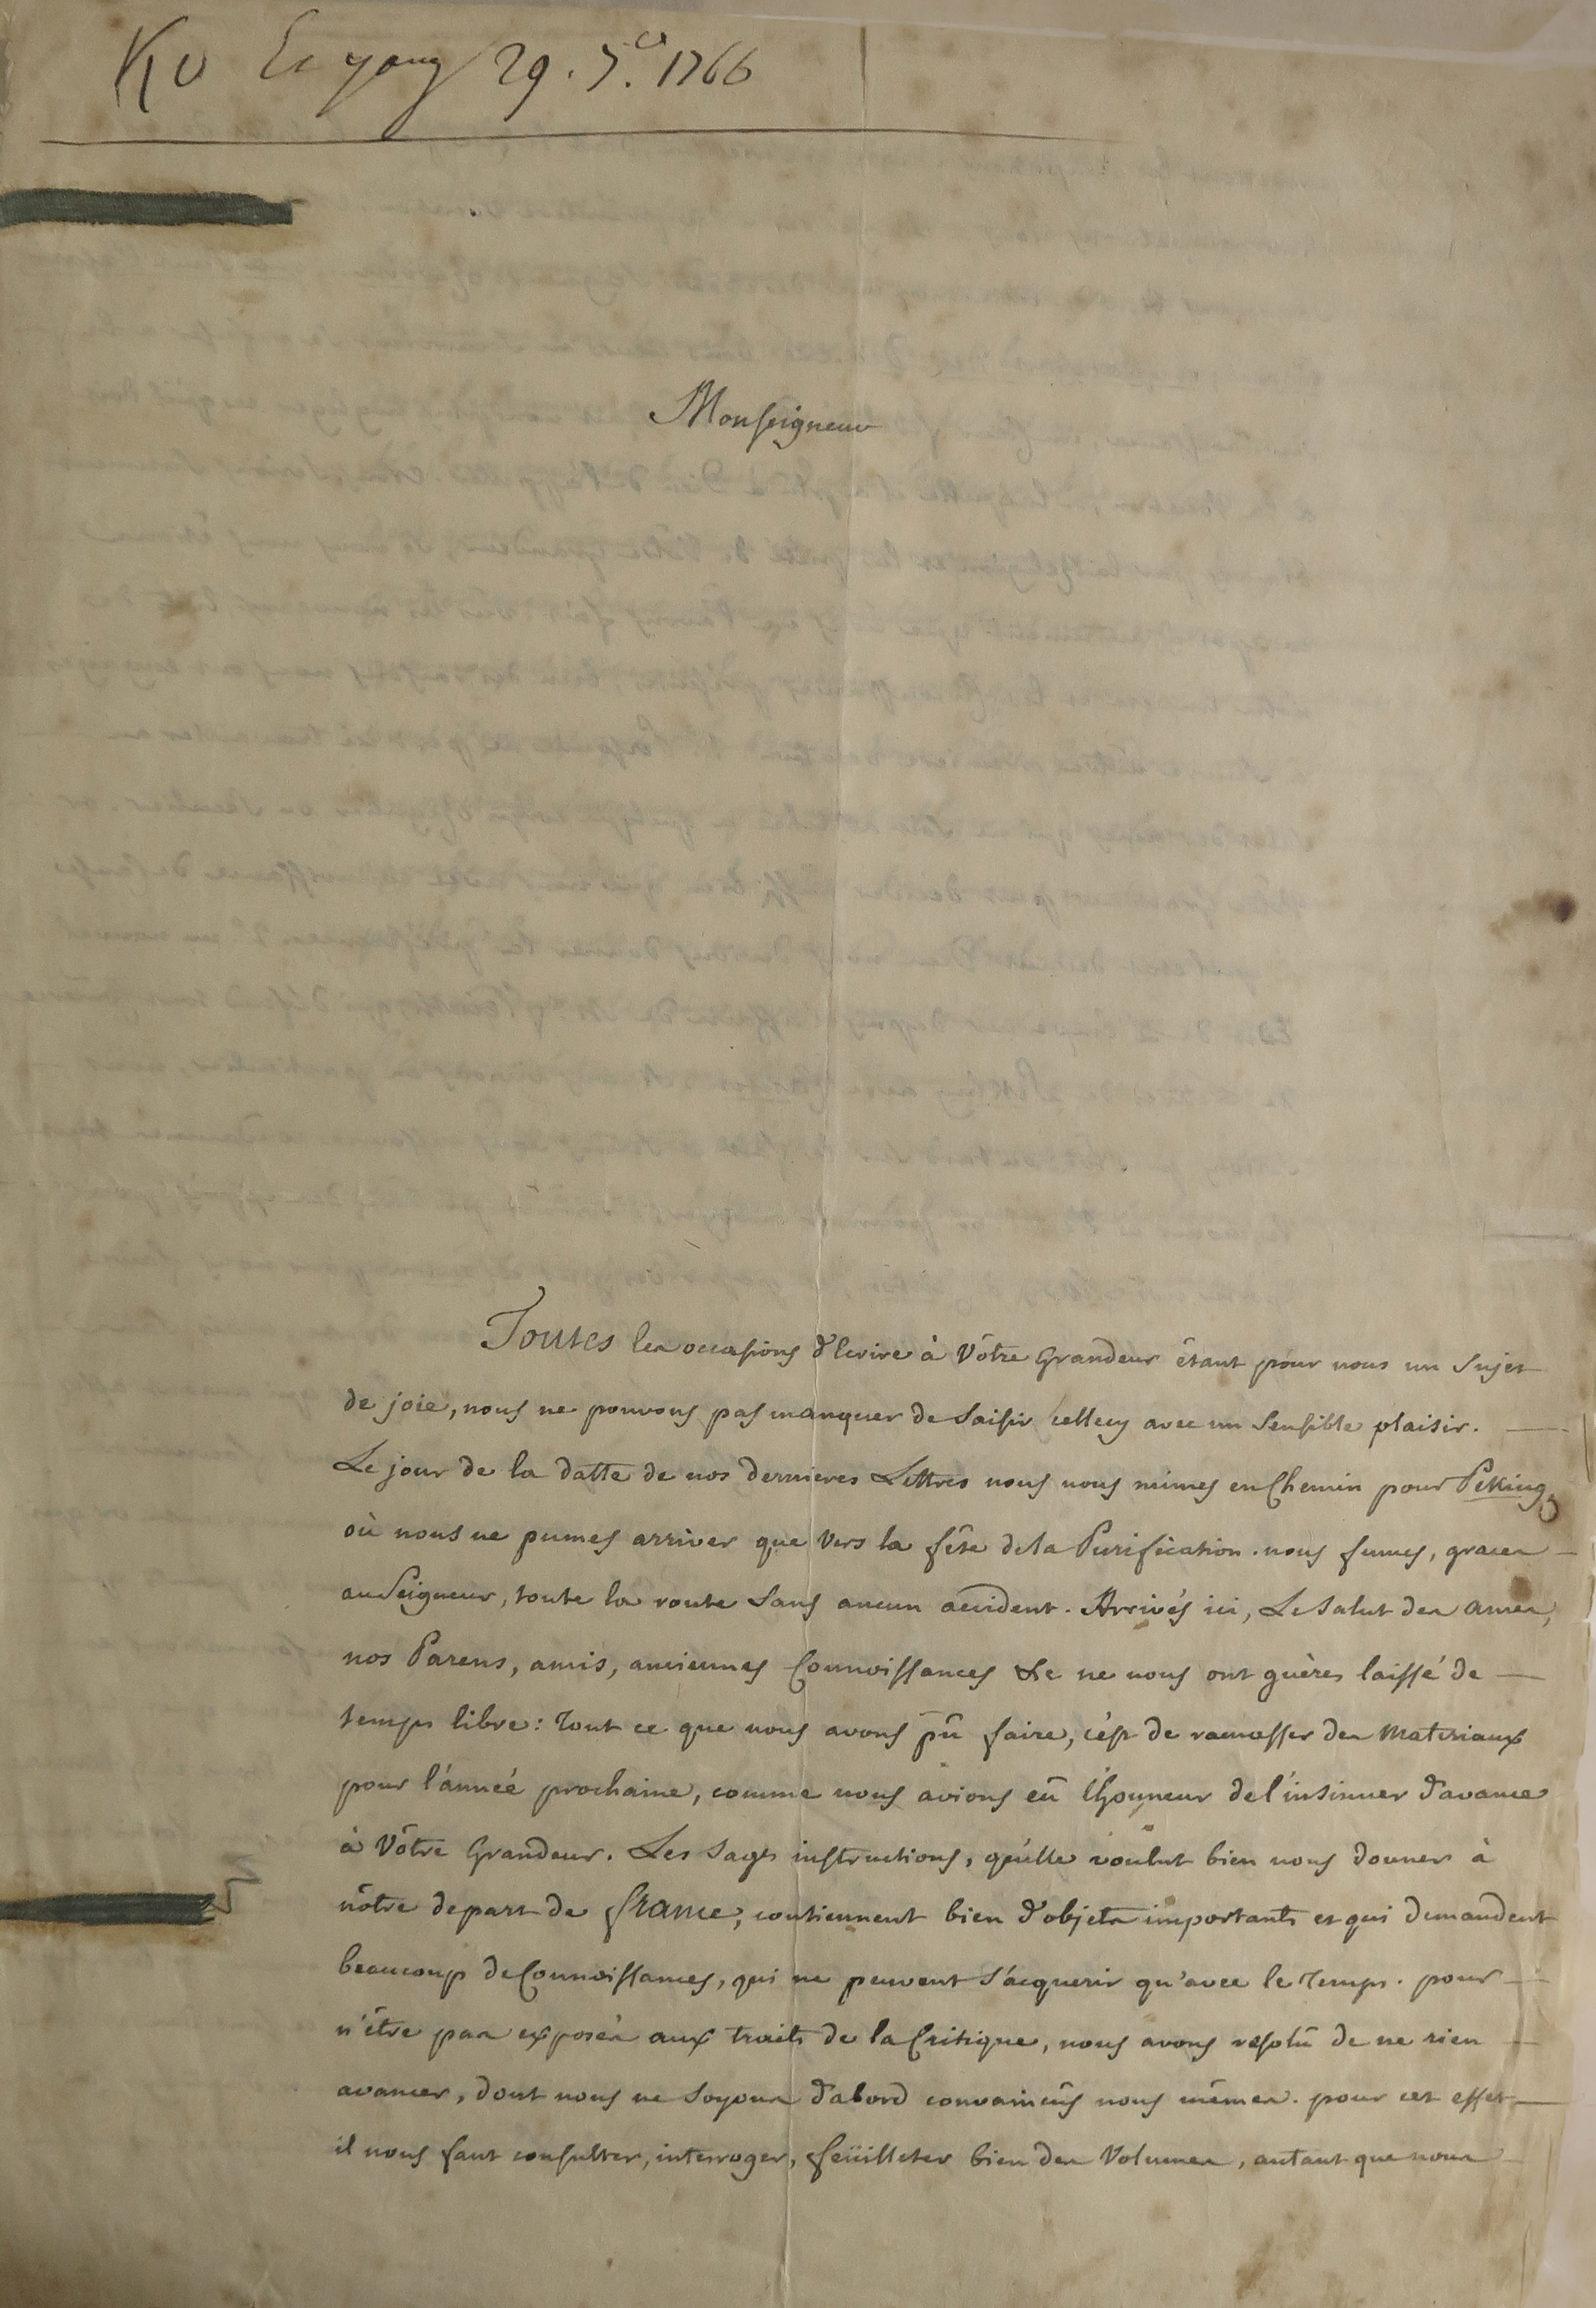 Ko 29. 1766
Monseigneur
Toutes les occasions d'Ecrire à Vôtre Grandeur êtant pour nous un Sujet
de joie, nous ne pouvons pas manquer de Saisir cellecy avec un Sensible plaisir.
Le jour de la datte de nos dernieres Lettres nous nous mimes en Chemin pour Peking,
où nous ne pumes arriver que Vers la fête de la Purification. nous fumes, graces
au Seigneur, toute la route Sans aucun accident. Arrivés ici, Le Salut des ames,
nos Parens, amis, anciennes Connoissances &c ne nous ont guères laissé de
temps libre: Tout ce que nous avons pû faire, c'est de ramasser des Materiaux
pour l'année prochaine, comme nous avions eû l'honneur de l'insinuer d'avance
à Vôtre Grandeur. Les Sages instructions, qu'elle voulut bien nous donner à
nôtre depart de france, contiennent bien d'objets importants et qui demandent
beaucoup de Connoissances, qui ne peuvent s'acquerir qu'avec le Temps. pour
n'être pas exposés aux traits de la Critique, nous avons resolû de ne rien
avancer, dont nous ne Soyons d'abord convaincûs nous mêmes. pour cet effet
il nous faut consulter, interroger, feüilleter bien des Volumes, autant que nous